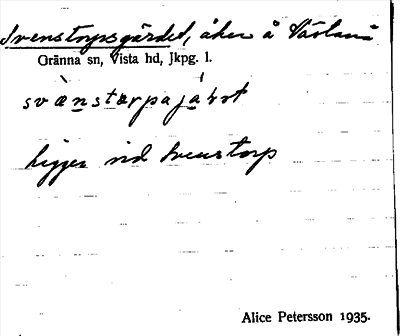 Svenstorpsgärdet, åker å
Gränna sn, Vista hd, Jkpg. l.
ligger vid Svenstorp
Alice Petersson 1935.